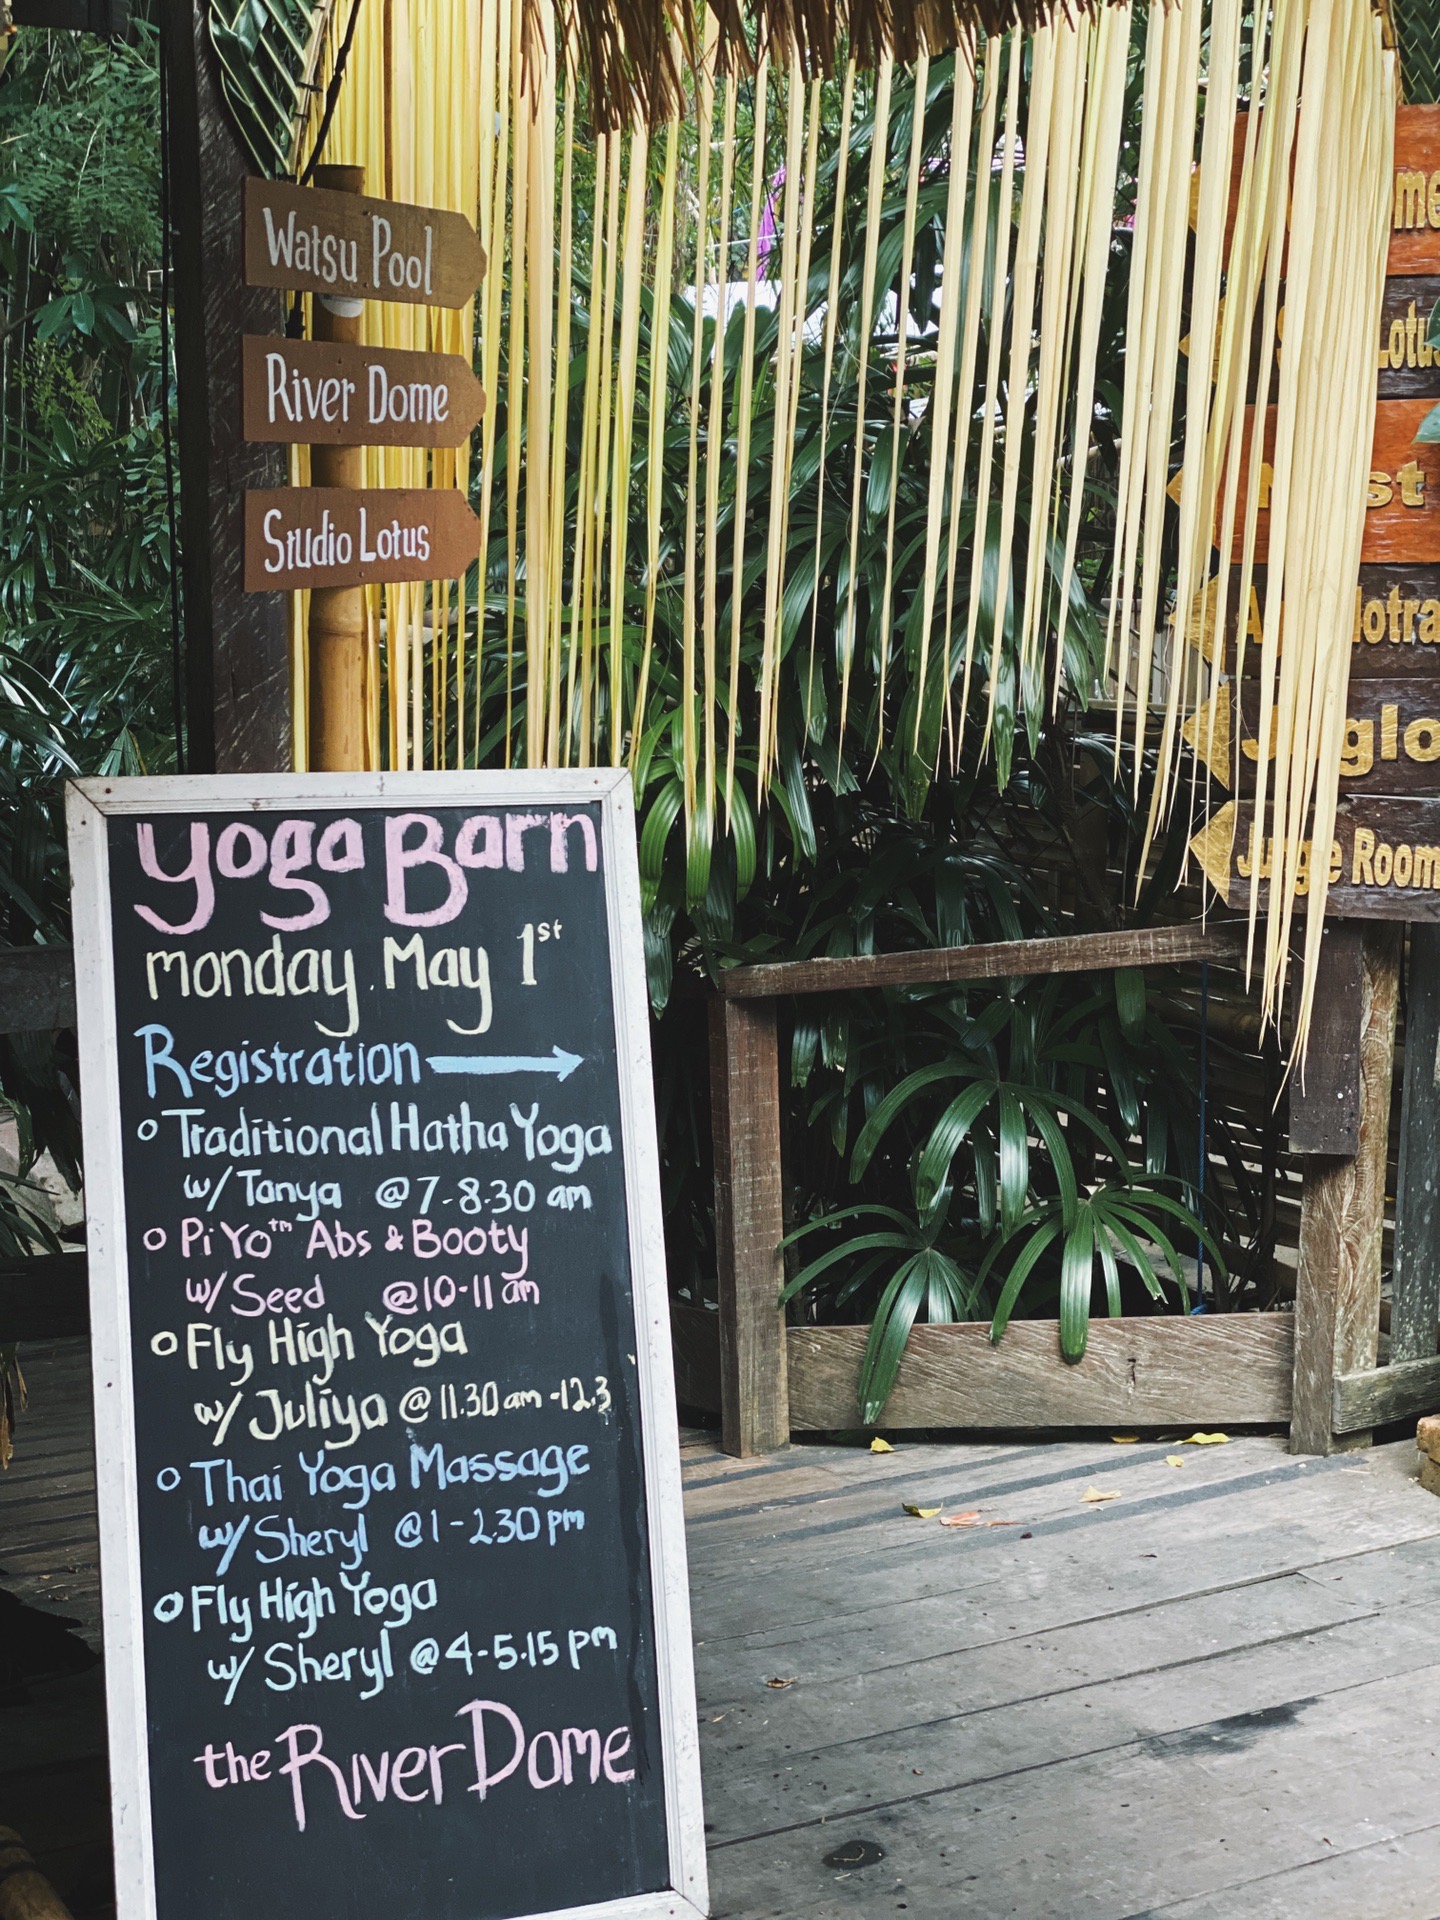 Watsu Pool
River Dome
Studio Lotus
Yoga Barn
monday. May 1st
Registration →
Traditional Hatha Yoga
w/ Tanya @ 7-8.30 am
PiYo™ Abs & Booty
w/ Seed @ 10-11 am
Fly High Yoga
w/ Juliya @ 11.30 am -12.3
Thai Yoga Massage
w/ Sheryl @ 1-2.30 pm
Fly High Yoga
w/ Sheryl @ 4-5.15 pm
the River Dome
Lotus
Room